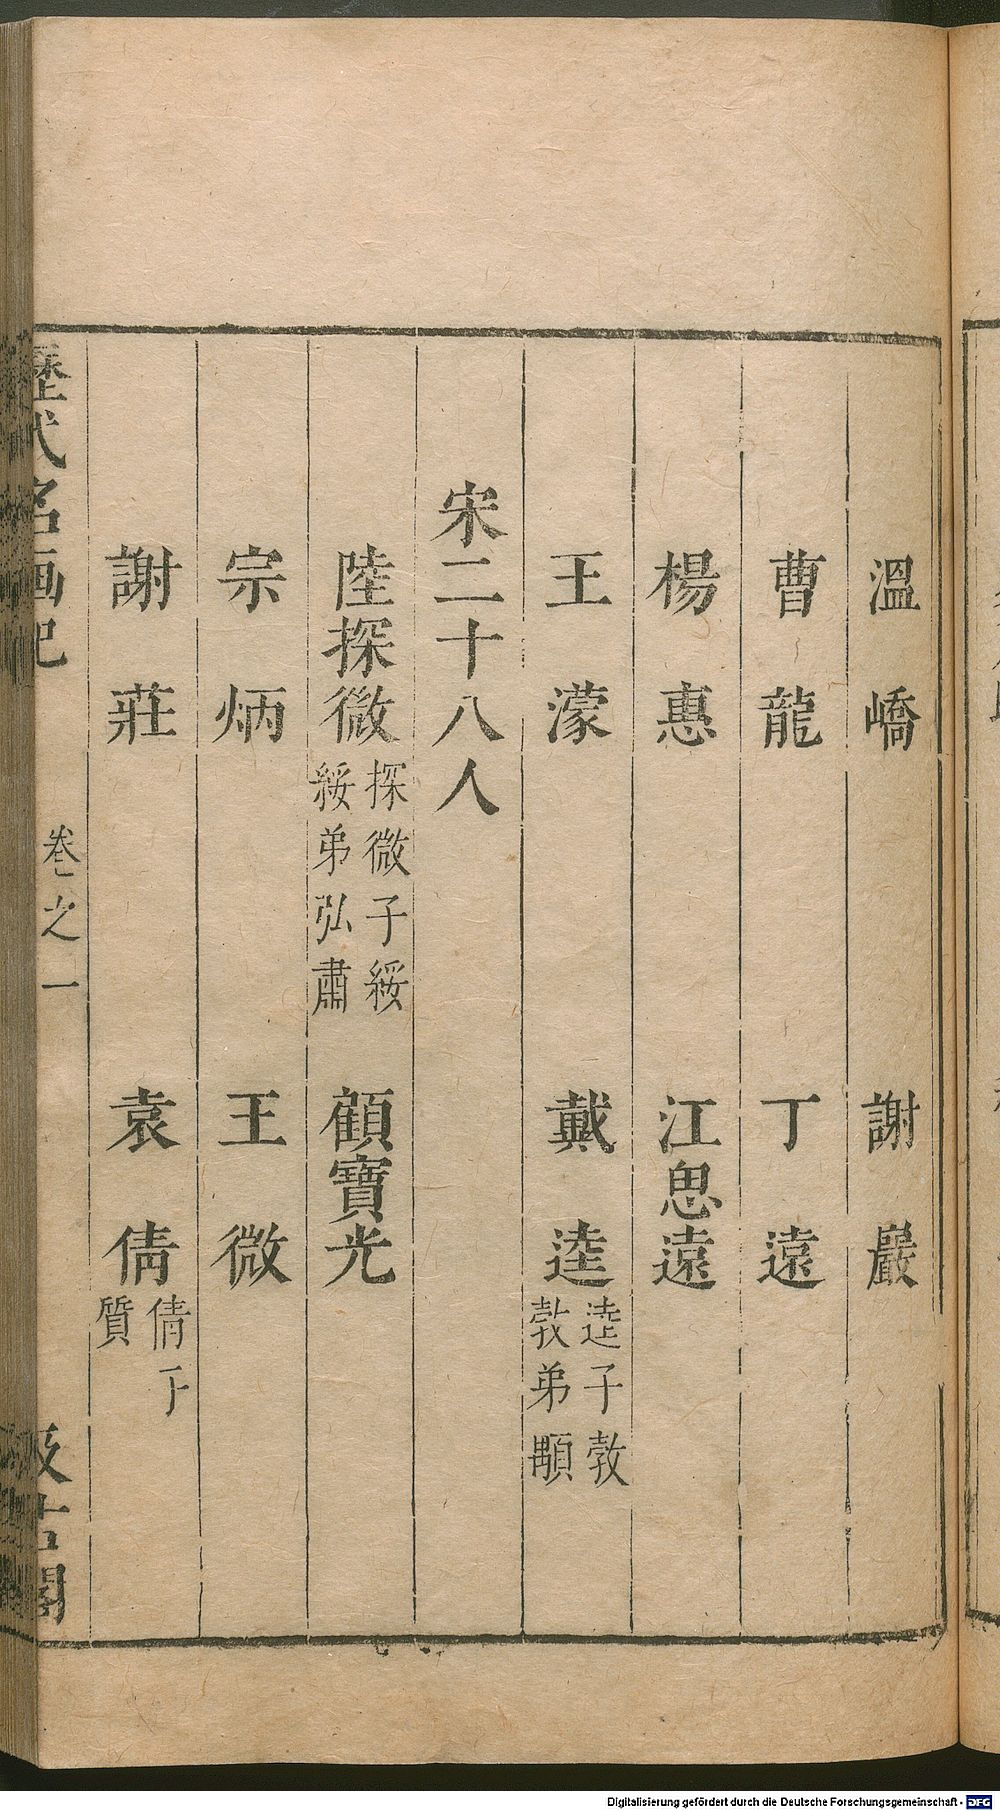 溫嶠 謝巖
曹龍 丁遠
楊惠 江思遠
王濛 戴逵 逵子㪍 㪍弟顒
宋二十八人
陸探微 探微子綏 綏弟弘肅 顧寶光
宗炳 王微
謝莊 袁倩 倩子 質
歷代名画記 卷之一 汲古閣
Digitalisierung gefördert durch die Deutsche Forschungsgemeinschaft - DFG